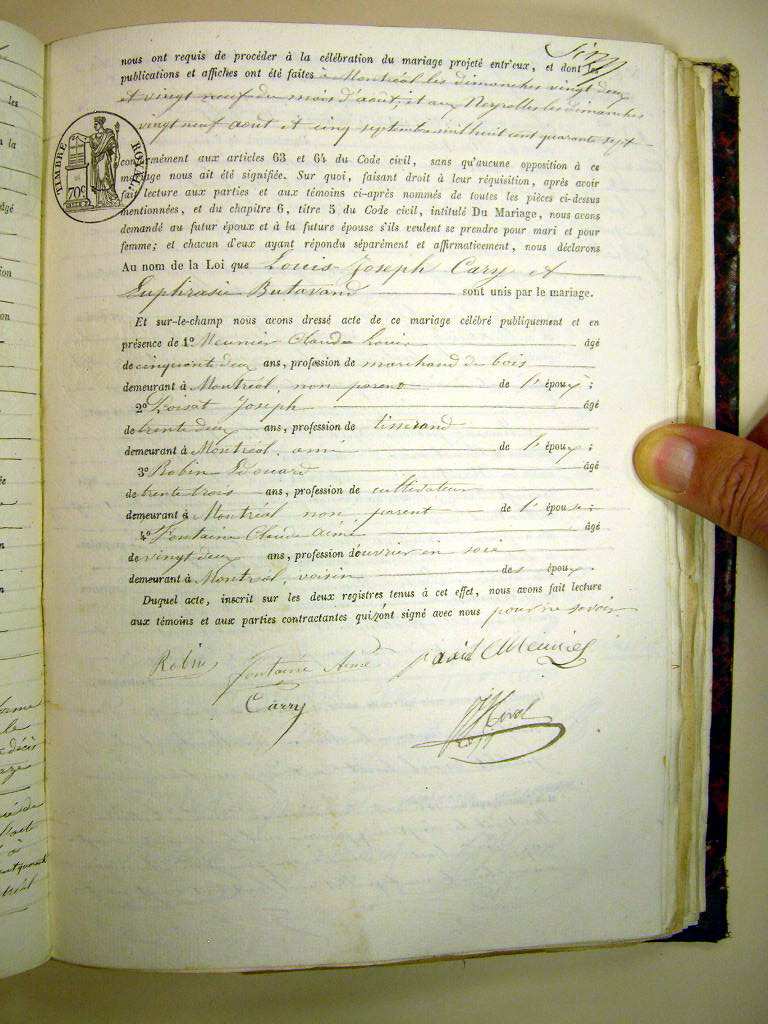 nous ont requis de procéder à la célébration du mariage projeté entr'eux, et dont les
publications et affiches ont été faites à Montréal les dimanches vingt deux
et vingt neuf du mois d'août, et aux Neyrolles les dimanches
vingt neuf août et cinq septembre mil huit cent quarante sept
TIMBRE ROYAL
70c
conformément aux articles 63 et 64 du Code civil, sans qu'aucune opposition à ce
mariage nous ait été signifiée. Sur quoi, faisant droit à leur réquisition, après avoir
fait lecture aux parties et aux témoins ci-après nommés de toutes les pièces ci-dessus
mentionnées, et du chapitre 6, titre 5 du Code cicil, intitulé Du Mariage, nous avons
demandé au futur époux et à la future épouse s'ils veulent se prendre pour mari et pour
femme; et chacun d'eux ayant répondu séparément et affirmativement, nous déclarons
Au nom de la Loi que Louis Joseph Cary et
Euphrasie Butavand sont unis par le mariage.
Et sur-le-champ nous avons dressé acte de ce mariage célébré publiquement et en
présence de 1º Meunier Claude Louis âgé
de cinquante deux ans, profession de marchand de bois
demeurant à Montréal, non parent de l' époux ;
2º Joseph âgé
de trente deux ans, profession de tisserand
demeurant à Montréal, ami de l' époux ;
3º Robin Edouard âgé
de trente trois ans, profession de cultivateur
demeurant à Montréal non parent de l' épouse ;
4º Fontaine Claude Aimé âgé
de vingt deux ans, profession d'ouvrier en soie
demeurant à Montréal, voisin des époux.
Duquel acte, inscrit sur les deux registres tenus à cet effet, nous avons fait lecture
aux témoins et aux parties contractantes qui ont signé avec nous pour ne savoir
Robin Fontaine Aimé Meunier
Carry